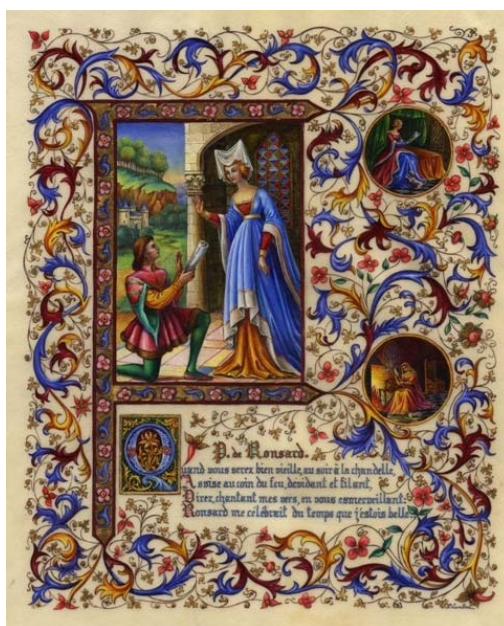 P. de Ronsard.
Quand vous serez bien vieille, au soir à la chandelle,
Assise au coin du feu, devidant et filant,
Direz, chantant mes vers, en vous esmerveillant:
Ronsard me célébrait du temps que j'estois belle.